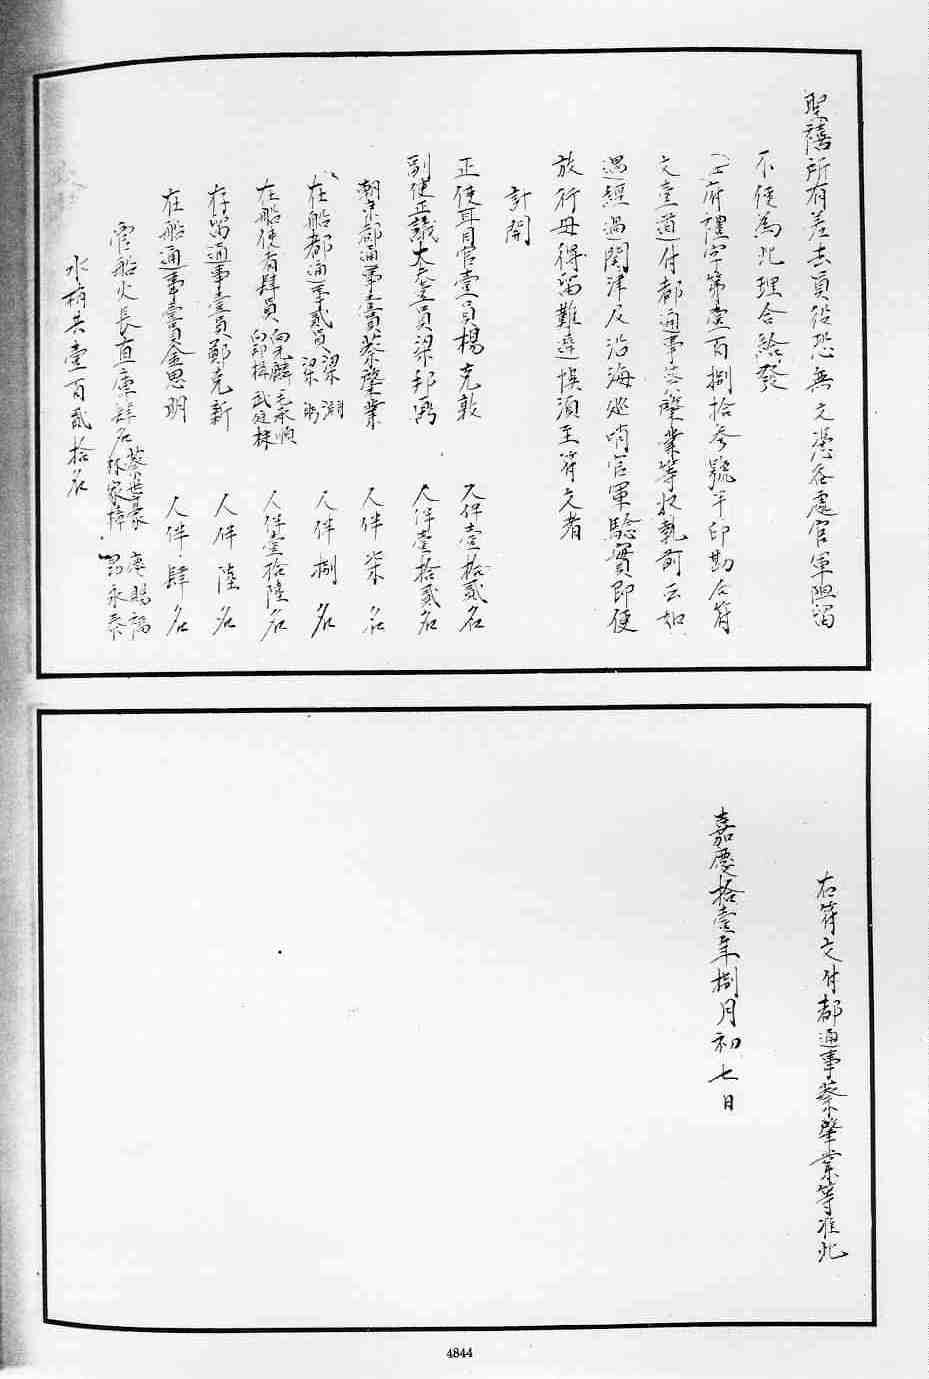 聖禧所有差去員役恐無文憑各處官軍阻留
不便為此理合給發
王府禮字第壹百捌拾參號半印勘合符
文壹道付都通事蔡肇業等收執前去如
遇經過關津及沿海巡哨官軍驗實即便
放行毋得留難違悞須至符文者
計開
正使耳目官壹員楊克敦 人伴壹拾貳名
副使正議大夫壹員梁邦弼 人伴壹拾貳名
朝京都通事壹員蔡肇業 人伴柒名
在船都通事貳員梁淵 梁弼 人伴捌名
在船使者肆員向光麟 毛承順 向邦棟 武廷株 人伴壹拾陸名
存留通事壹員鄭克新 人伴陸名
在船通事壹員金思明 人伴肆名
管船火長直庫肆名蔡世豪 林家棟 康賜福 翁永泰
水梢共壹百貳拾名
右符文付都通事蔡肇業等准此
嘉慶拾壹年捌月初七日
4844